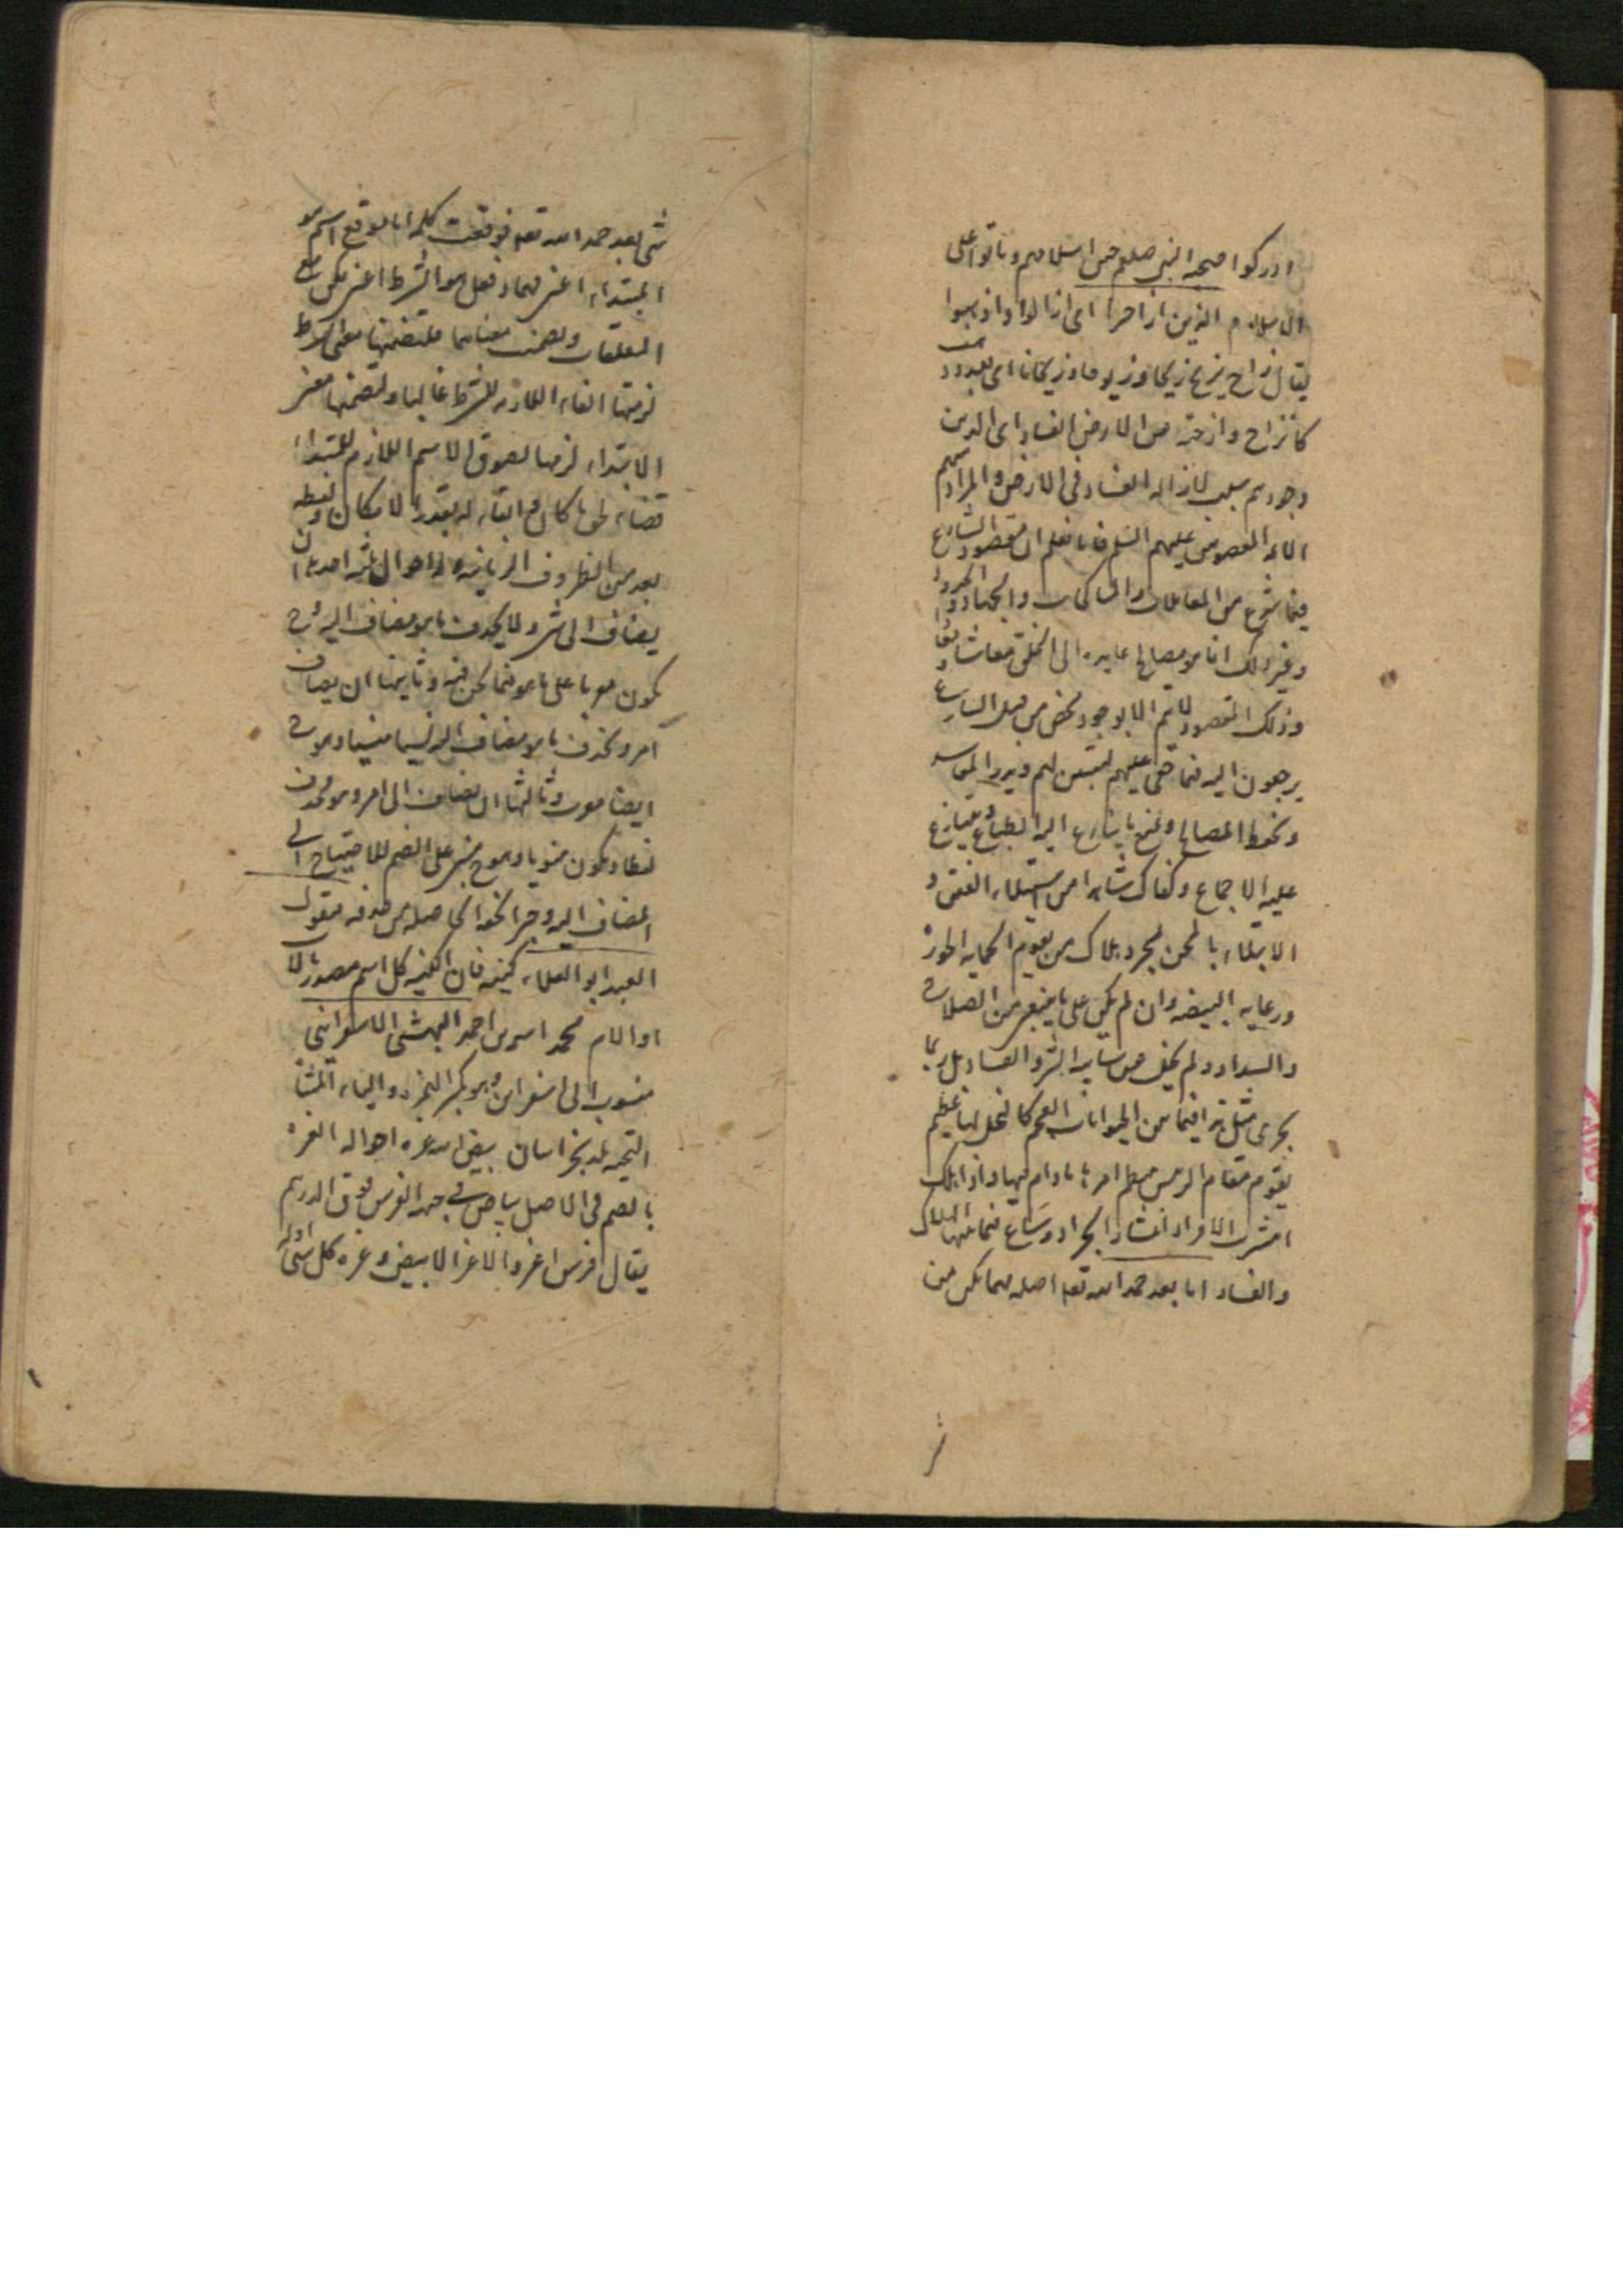 ادركوا صحبه النبي صلعم حين اسلامهم وماتوا على
الاسلام الذين ازاحوا اى ازالوا واذهبوا
يقال زاح يزيح زيحا وزيوحا وزيحانا اى بعد وذهب
كانزاح وازحته من الارض الفساد اى الذين
وجودهم سبب لازاله الفساد فى الارض والمراد بهم
الائمه المعصومين عليهم السلم فانا نعلم ان مقصود الشارع
فيما شرع من المعاملات والمناكحات والجهاد والحدود
وغير ذلك انما هو مصالح عايده الى الخلق معاشا و
وذلك المقصود لا يتم الا بوجود شخص من قبل الشارع
يرجعون اليه فيما
ونحوط المصالح ويمنع ما يتنازع اليه الطباع ويتنازع
عليه الاجماع وكفاك شاهدا من استيلاء الفتن و
الابتلاء بالمحن لمجرد هلاك من يقوم لحمايه الحوزه
ورعايه البيضه وان لم يكن على ما ينبغى من الصلاح
والسداد ولم يخل من شايبه الشر والفساد بل ربما
يجرى مثل هذا فيما بين الحيوانات العجم كالنحل لها عظيم
يقوم مقام الرئيس ينتظم امرها ما دام فيها واذا هلك
انتشرت الافراد انتشار الجراد وشاع فيما بينها الهلاك
والفساد اما بعد حمد الله تعه اصله مهما يكن من
شى بعد حمد الله تعه فوقعت كلمه اما موقع اسم هو
المبتداء اعنى مهما وفعل هو الشرط اعنى يكن مع
المتعلقات وتضمنت معناهما فلتضمنها معنى الشرط
لزمتها الفاء اللازمه للشرط غالبا ولتضمنها معنى
الابتداء لزمها لصوق الاسم اللازم للمبتداء
قضاء لحق ما كان وابقاء له بقدر الامكان ولفظه
بعد من الظروف الزمانيه له احوال ثلثه احدها ان
يضاف الى شى ولا يحذف ما هو مضاف اليه وح
يكون معربا على ما هو فيما نحن فيه وثانيها ان يضاف
امر ويحذف ما هو مضاف اليه نسيا منسيا وهو ح
ايضا معرب وثالثها ان يضاف الى امر وهو محذوف
لفظا ويكون منويا وهو ح مبنى على الضم للاحتياج الى
المضاف اليه وجبرا لنحو الحاصل من حذفه فيقول
العبد ابو العلاء كنيه فان الكنيه كل اسم مصدر بالاب
او الام محمد بن احمد البهشتى الاسفراينى
منسوب الى اسفراين وهو بكسر الهمزه والياء المثناه
التحتيه بلد بخراسان بيض الله غره احواله الغره
بالضم فى الاصل بياض فى جبهه الفرس فوق الدرهم
يقال فرس اغر والاغر الابيض وغره كل شى اوله